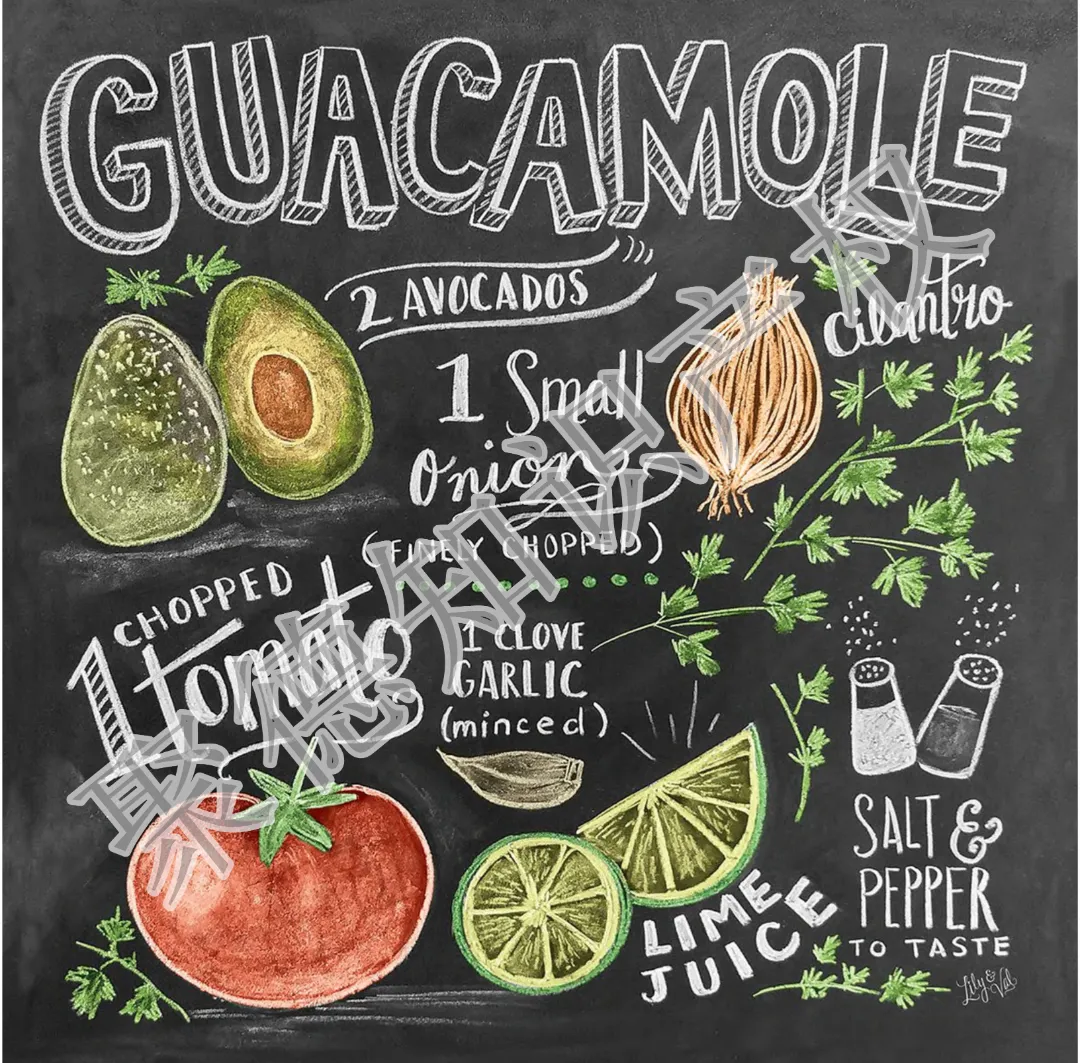 GUACAMOLE
2 AVOCADOS
cilantro
1 Small
Onion
(FINELY CHOPPED)
1 CHOPPED
tomato
1 CLOVE
GARLIC
(minced)
LIME
JUICE
SALT &
PEPPER
TO TASTE
Lily & Val
聚德知识产权